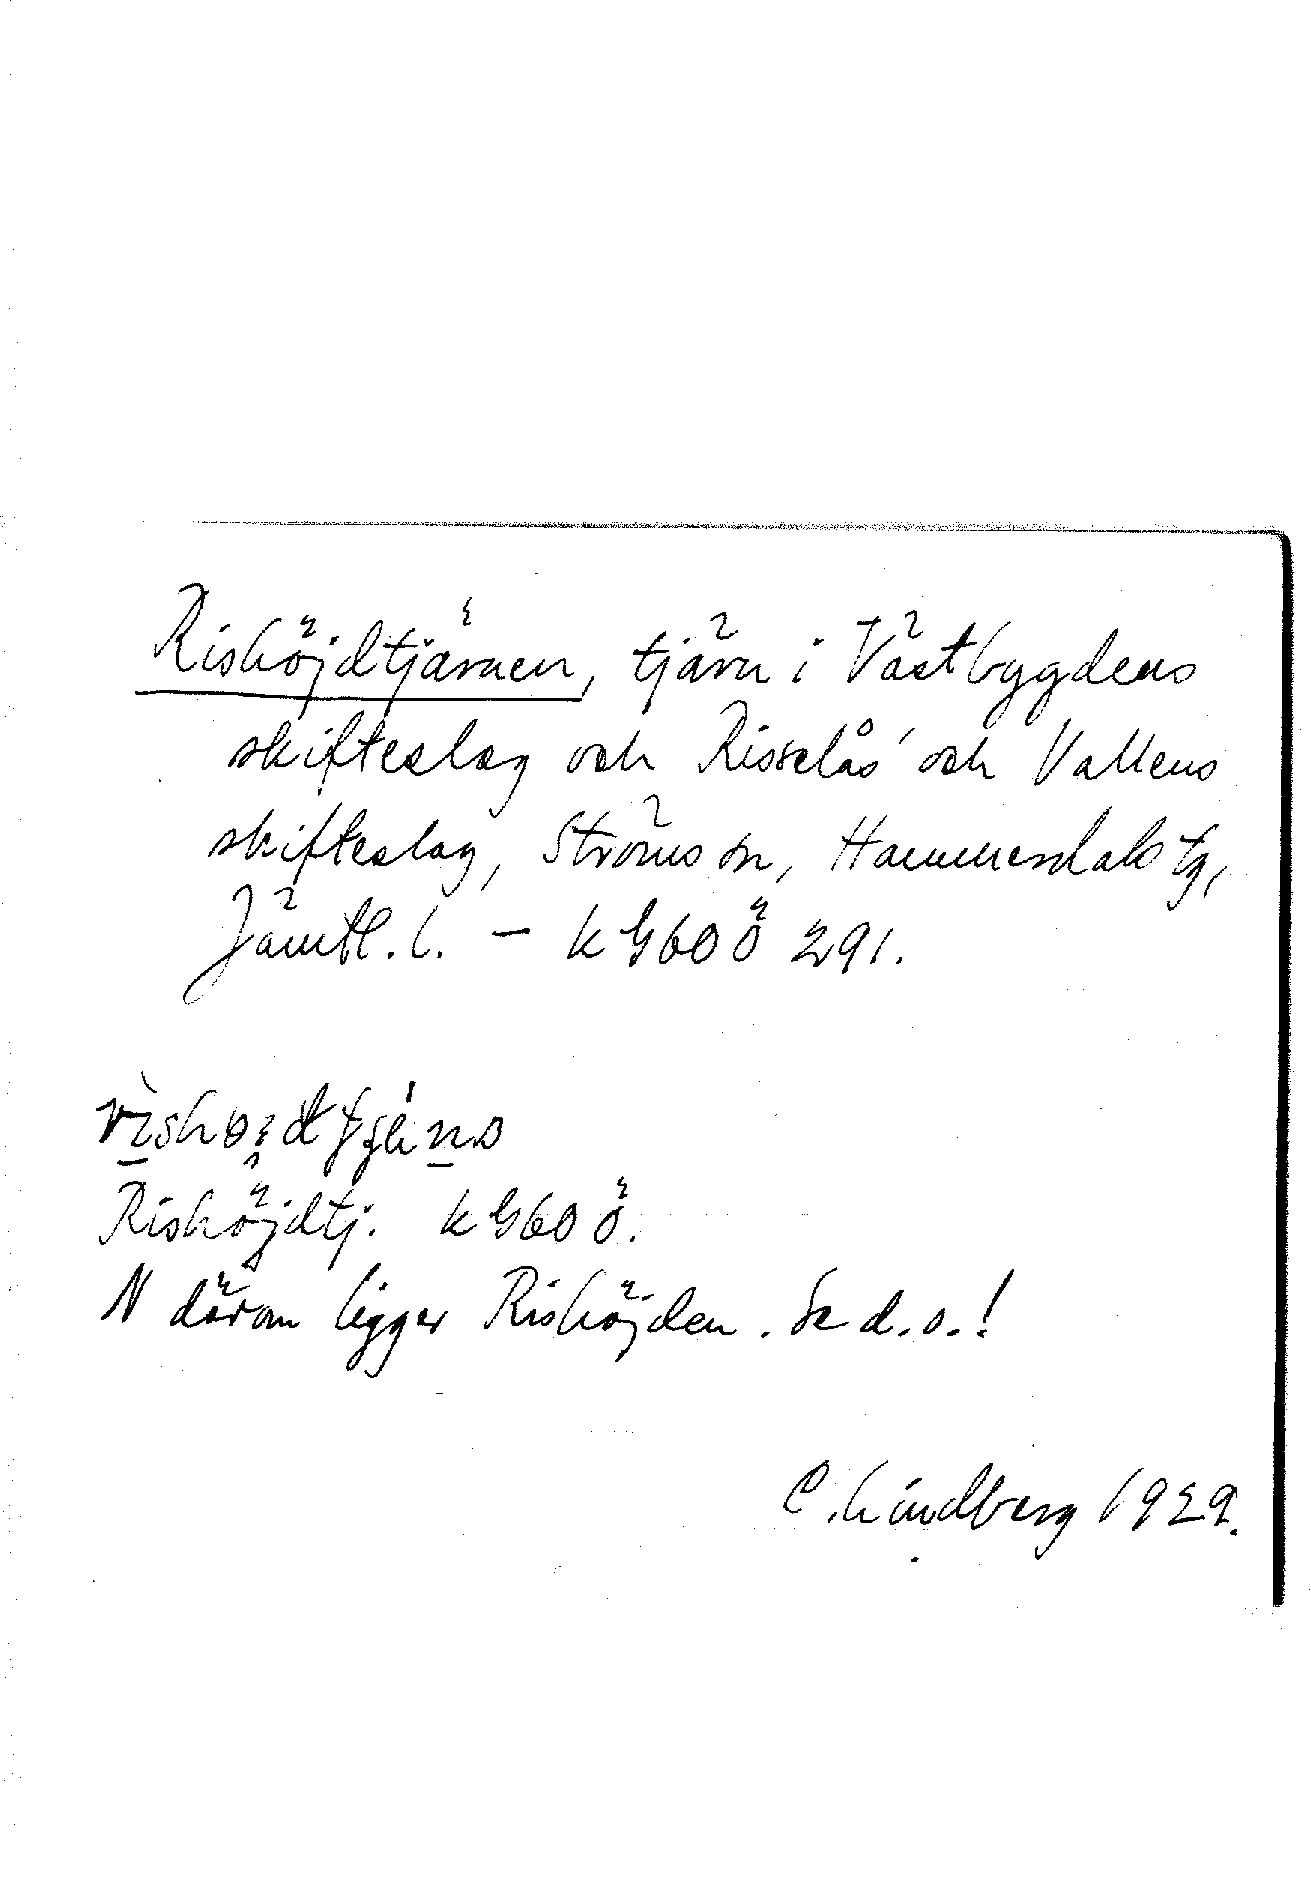 Rishöjdtjärnen, tjärn i Västbygdens
skifteslag och Risselås och Vallens
skifteslag, Ströms sn, Hammerdals tg,
Jämtl. l. — k G60Ö 291.
Rishöjdtj. k G60Ö.
N därom ligger Rishöjden. Se d.o.!
C. Lindberg 1929.